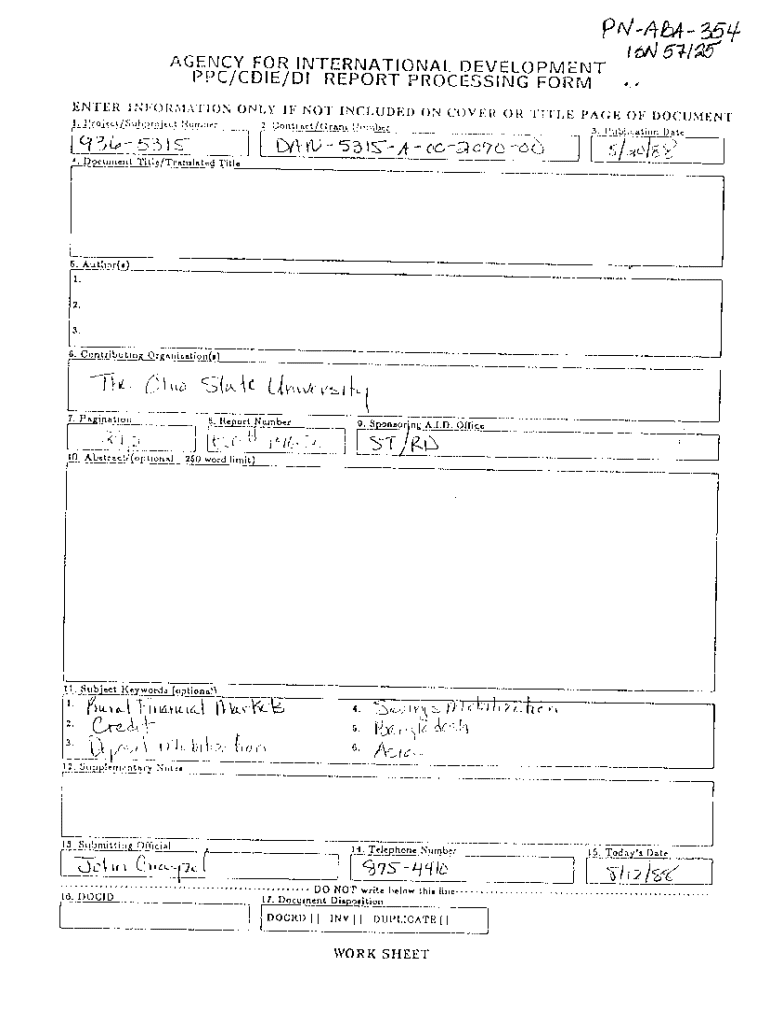 PN-ABA-354
ISN 57125
AGENCY FOR INTERNATIONAL DEVELOPMENT
PPC/CDIE/DI REPORT PROCESSING FORM
ENTER INFORMATION ONLY IF NOT INCLUDED ON COVER OR TITLE PAGE OF DOCUMENT
1. Project/Subproject Number
2. Contract/Grant Number
3. Publication Date
936-5315
DAN-5315-A-00-2070-00
5/20/88
4. Document Title/Translated Title
5. Author(s)
1.
2.
3.
6. Contributing Organization(s)
The Ohio State University
7. Pagination
8. Report Number
9. Sponsoring A.I.D. Office
ST/RD
10. Abstract (optional - 250 word limit)
11. Subject Keywords (optional)
1. Rural Financial Markets
4. Savings Mobilization
2. Credit
5. Bangladesh
3. Deposit Mobilization
6. Asia
12. Supplementary Notes
13. Submitting Official
14. Telephone Number
15. Today's Date
John
875-4410
8/12/88
DO NOT write below this line
16. DOCID
17. Document Disposition
DOCRD [] INV [] DUPLICATE []
WORK SHEET